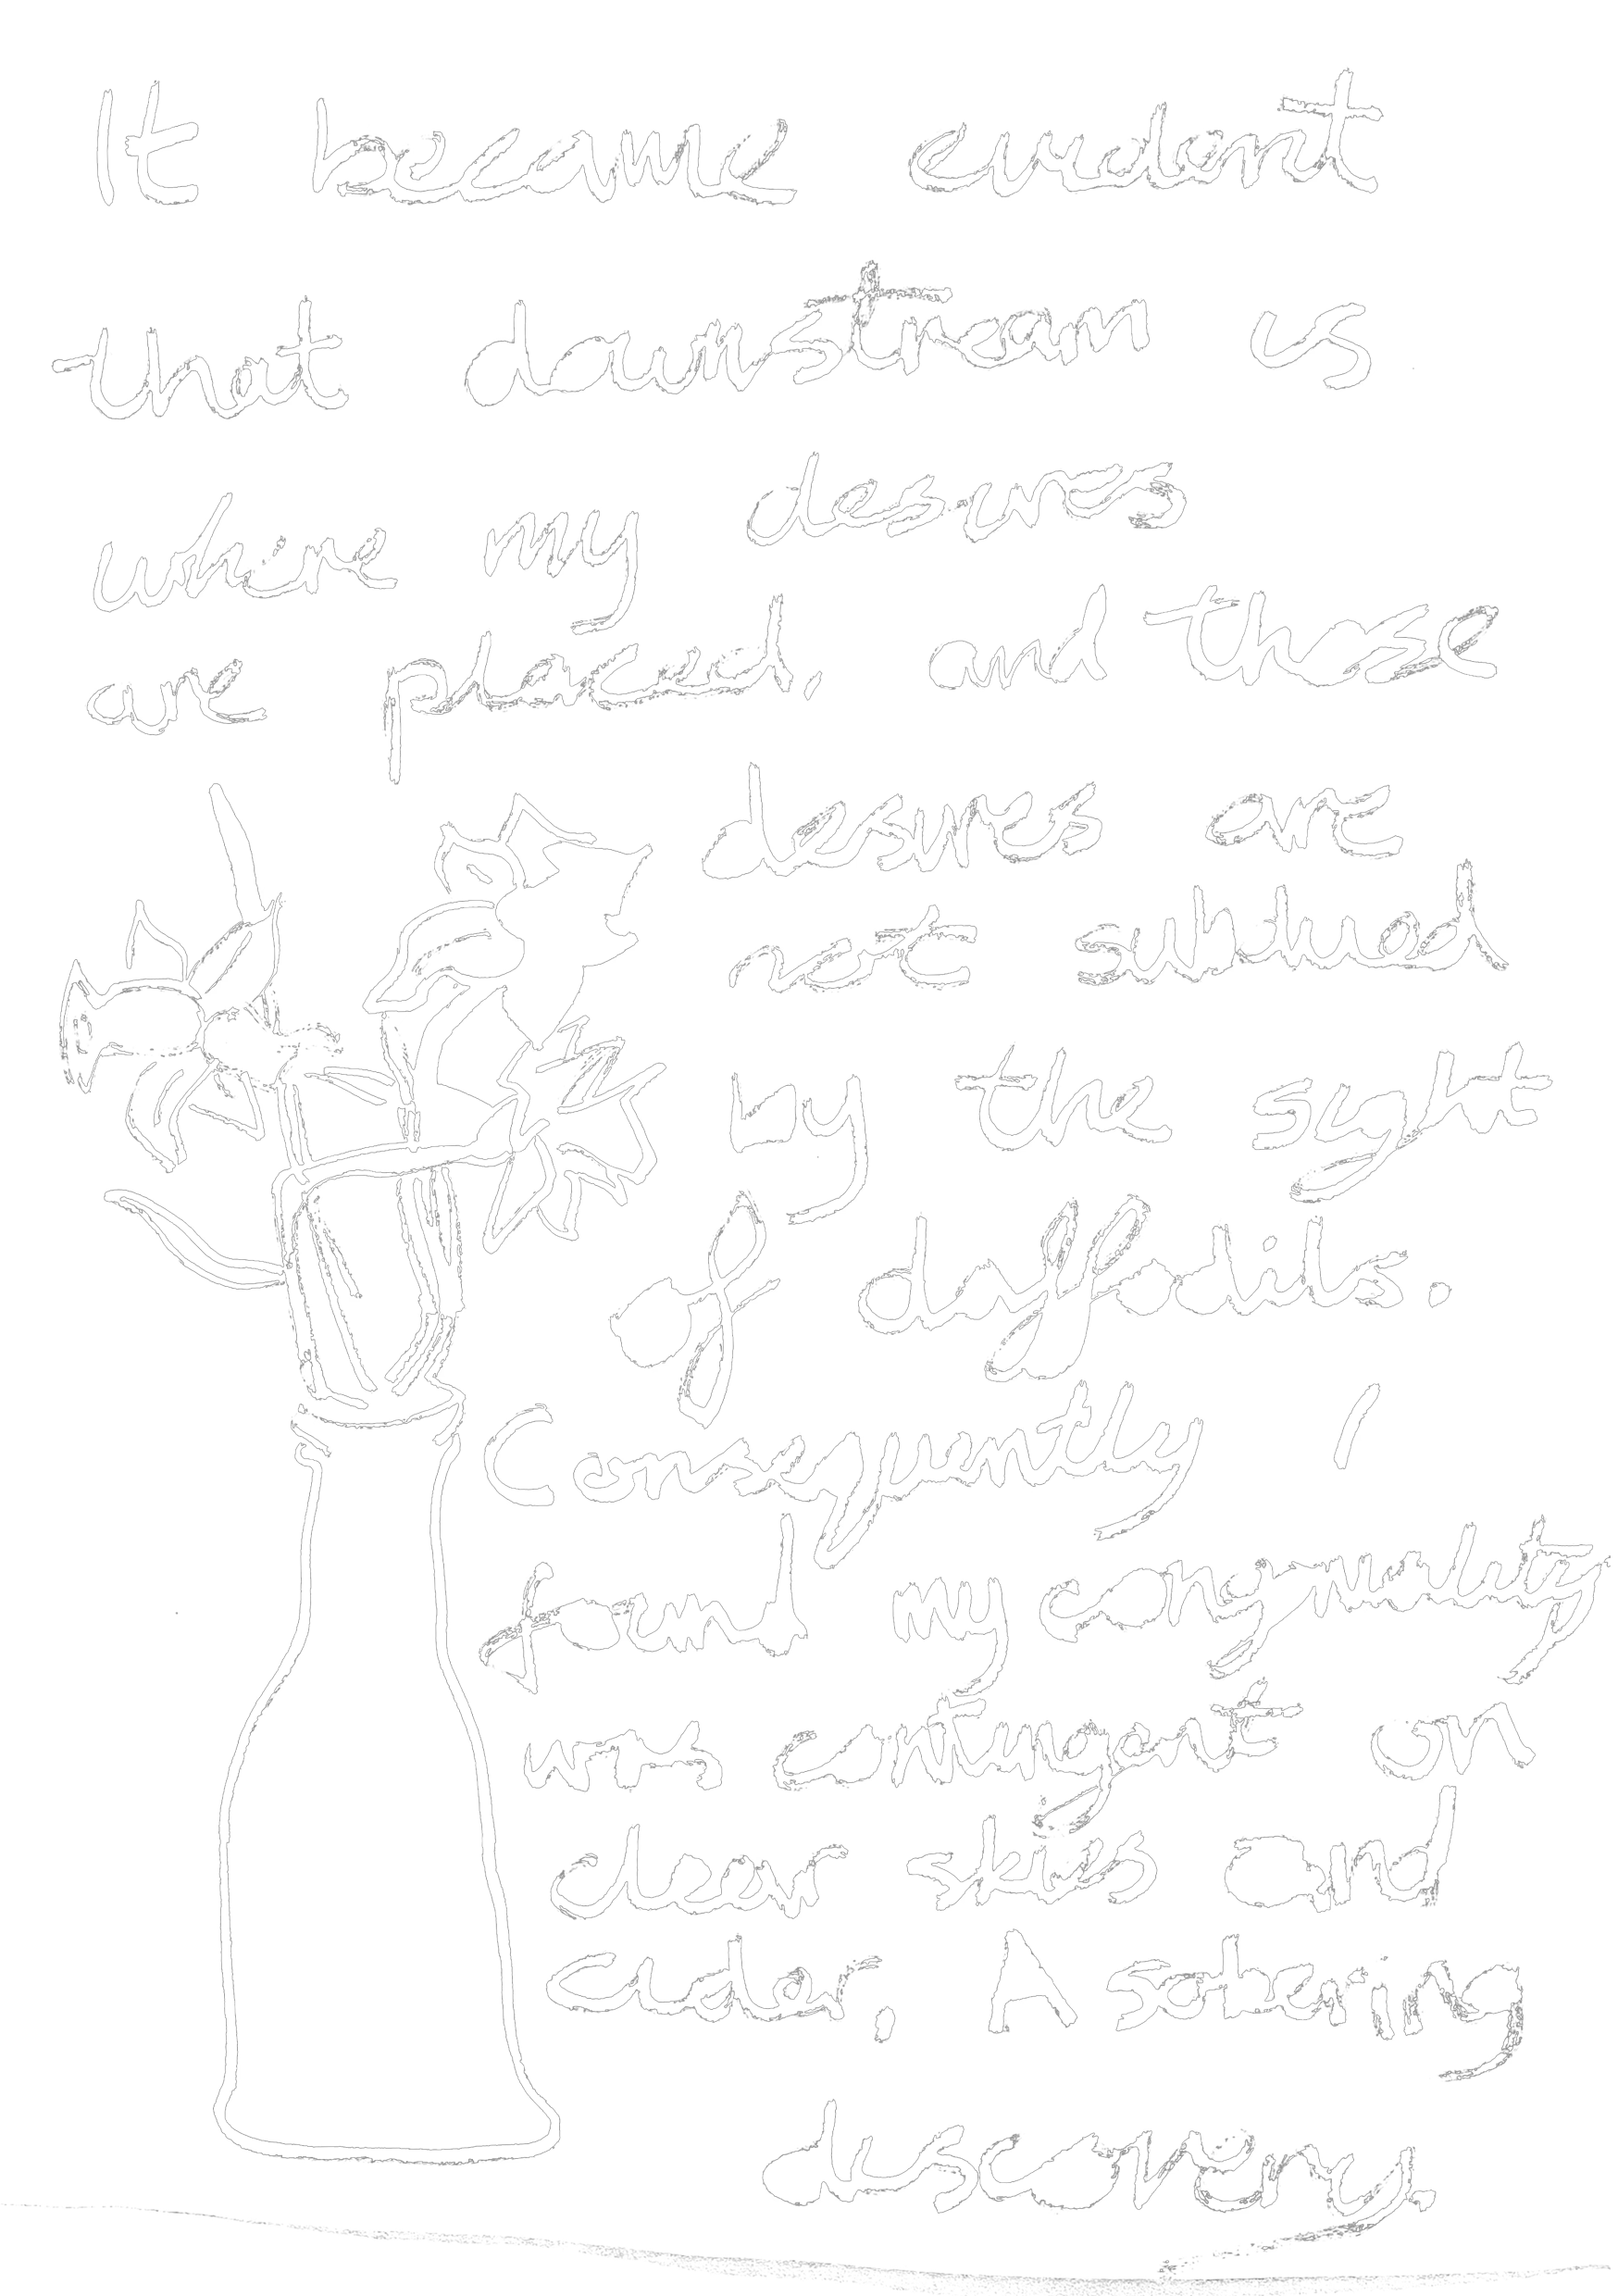 It became evident
that downstream is
where my desires
are placed, and those
desires are
not subdued
by the sight
of daffodils.
Consequently I
found my congeniality
was contingent on
clear skies and
cider. A sobering
discovery.